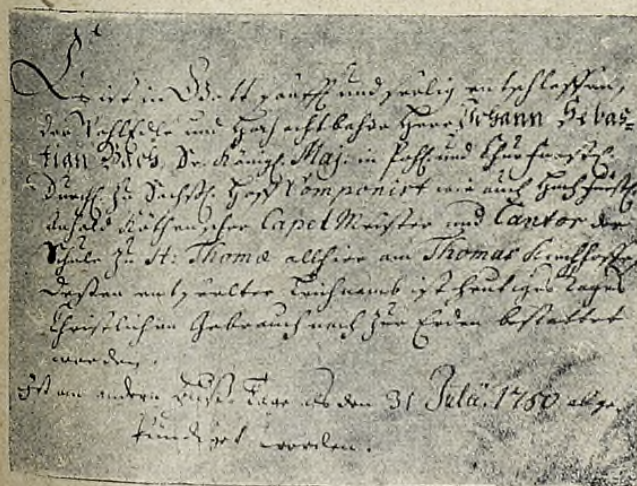 Es ist in Gott sanfft und seelig entschlaffen,
der Wohledle und Hochachtbahre Herr Johann Sebas=
tian Bach, Sr. Königl. Maj. in Pohl. und Churfürstl.
Durchl. zu Sachßl. Hoff Componist wie auch Hochfürstl.
Anhalt Köthenscher Capel Meister und Cantor der
Schule zu St: Thomæ allhier am Thomas Kirchhoffe,
Deßen entseelter Leichnamb ist heutiges Tages
Christlichen Gebrauch nach zur Erden bestattet
worden.
Ist am andern Buß Tage als den 31 Julii. 1750 abge-
kündiget worden.